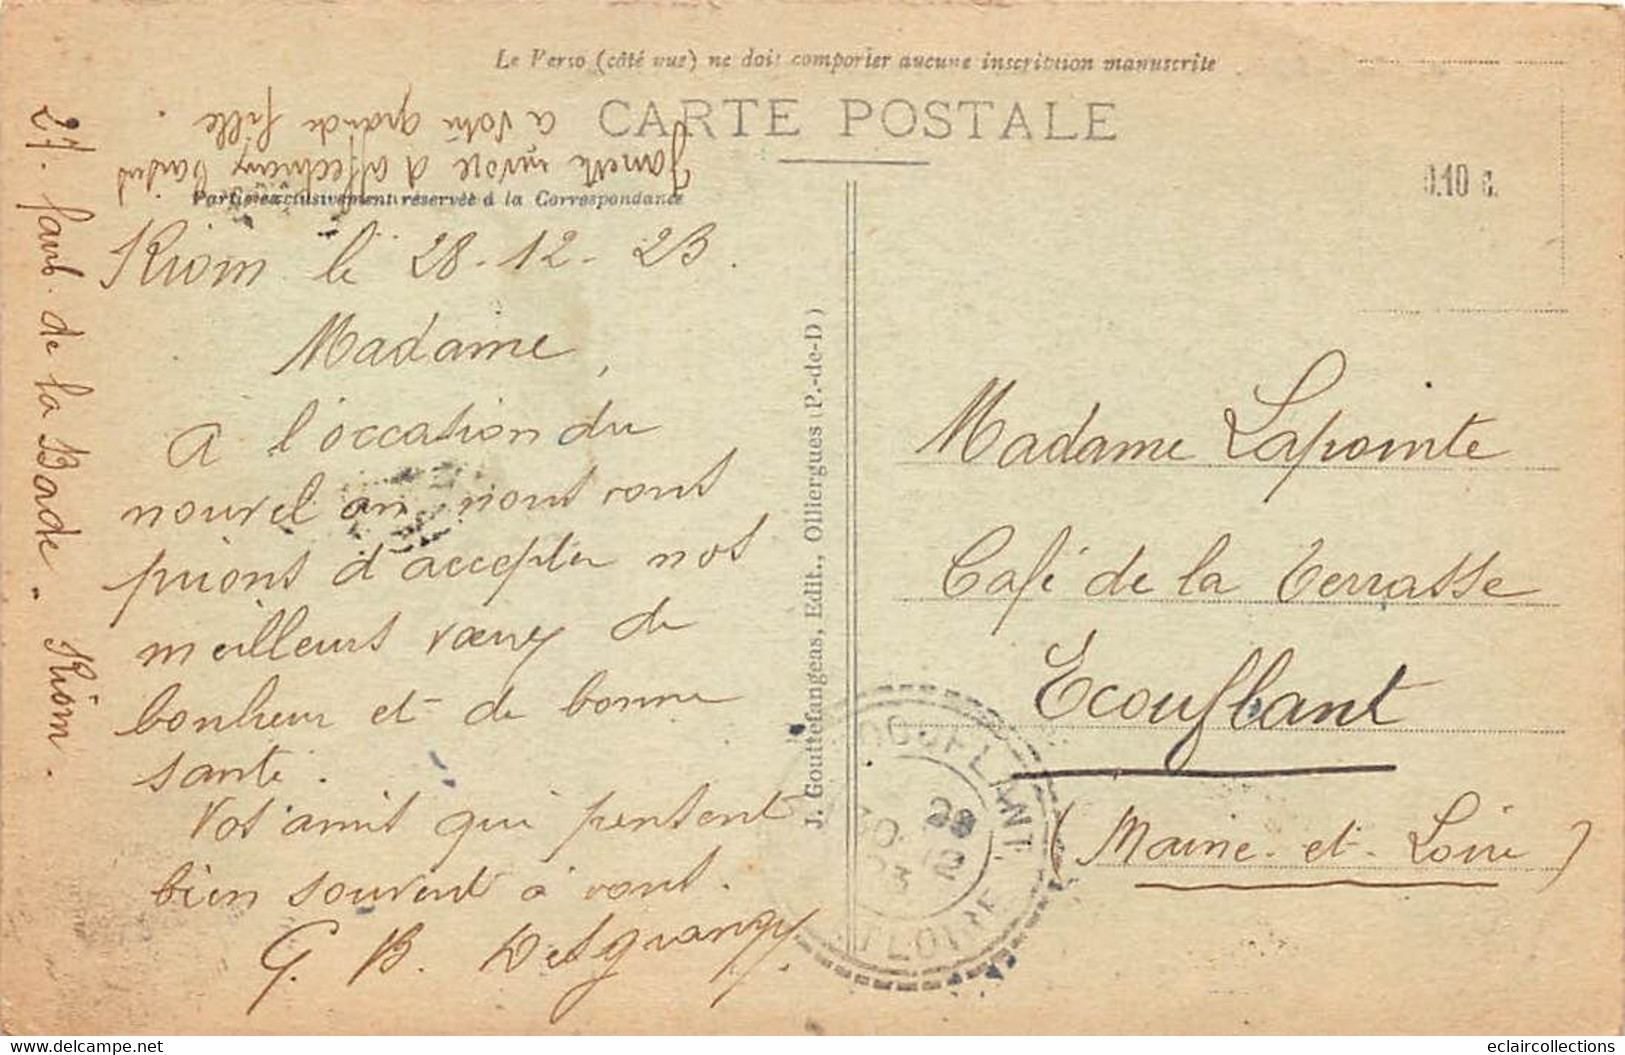 Le Verso (côté vue) ne doit comporter aucune inscription manuscrite
CARTE POSTALE
0.10 c.
Partie exclusivement réservée à la Correspondance
envoie d'affectueux baisers
a votre grande fille.
Riom le 28-12-23.
Madame,
A l'occasion du
nouvel an nous vous
prions d'accepter nos
meilleurs vœux de
bonheur et de bonne
santé.
Vos amis qui pensent
bien souvent à vous.
G. B. Desgranges
27. faub. de la Bade. Riom.
J. Gouttefangeas, Edit., Olliergues (P.-de-D)
Madame Lapointe
Café de la Terrasse
Ecouflant
(Maine-et-Loire)
ECOUFLANT
30
23
ET LOIRE
www.delcampe.net
eclaircollections